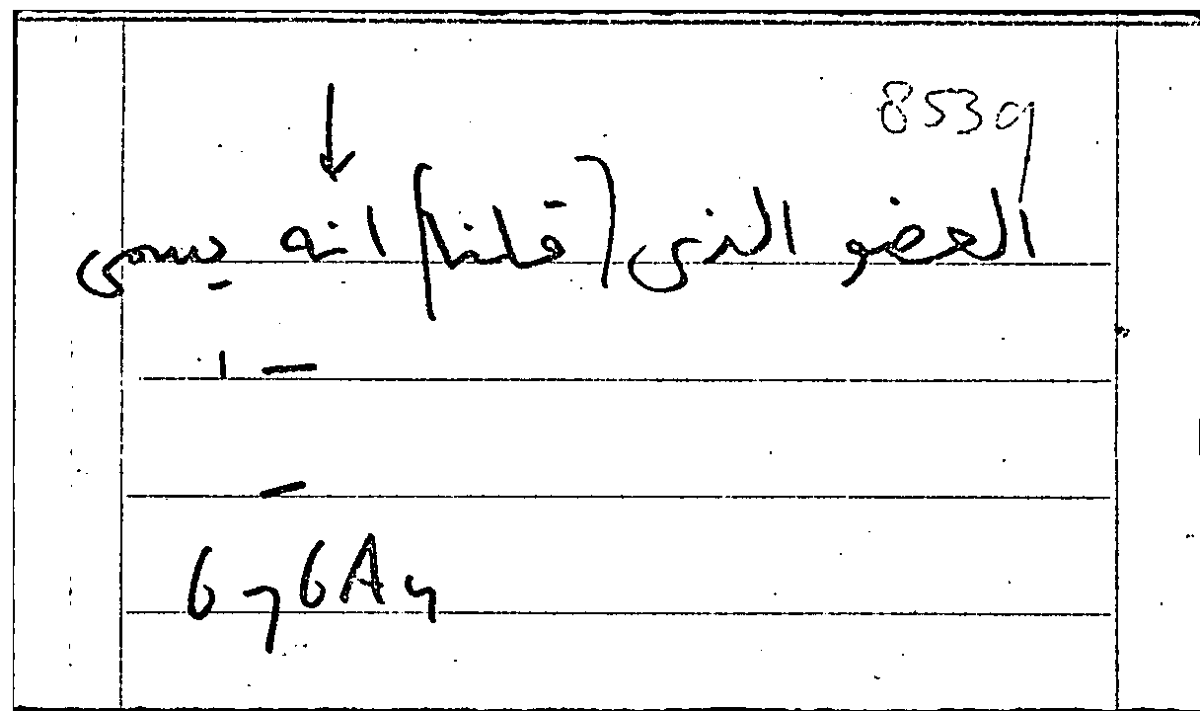 8539
العضو الذى (قلنا) انه يسمى
- ١
-